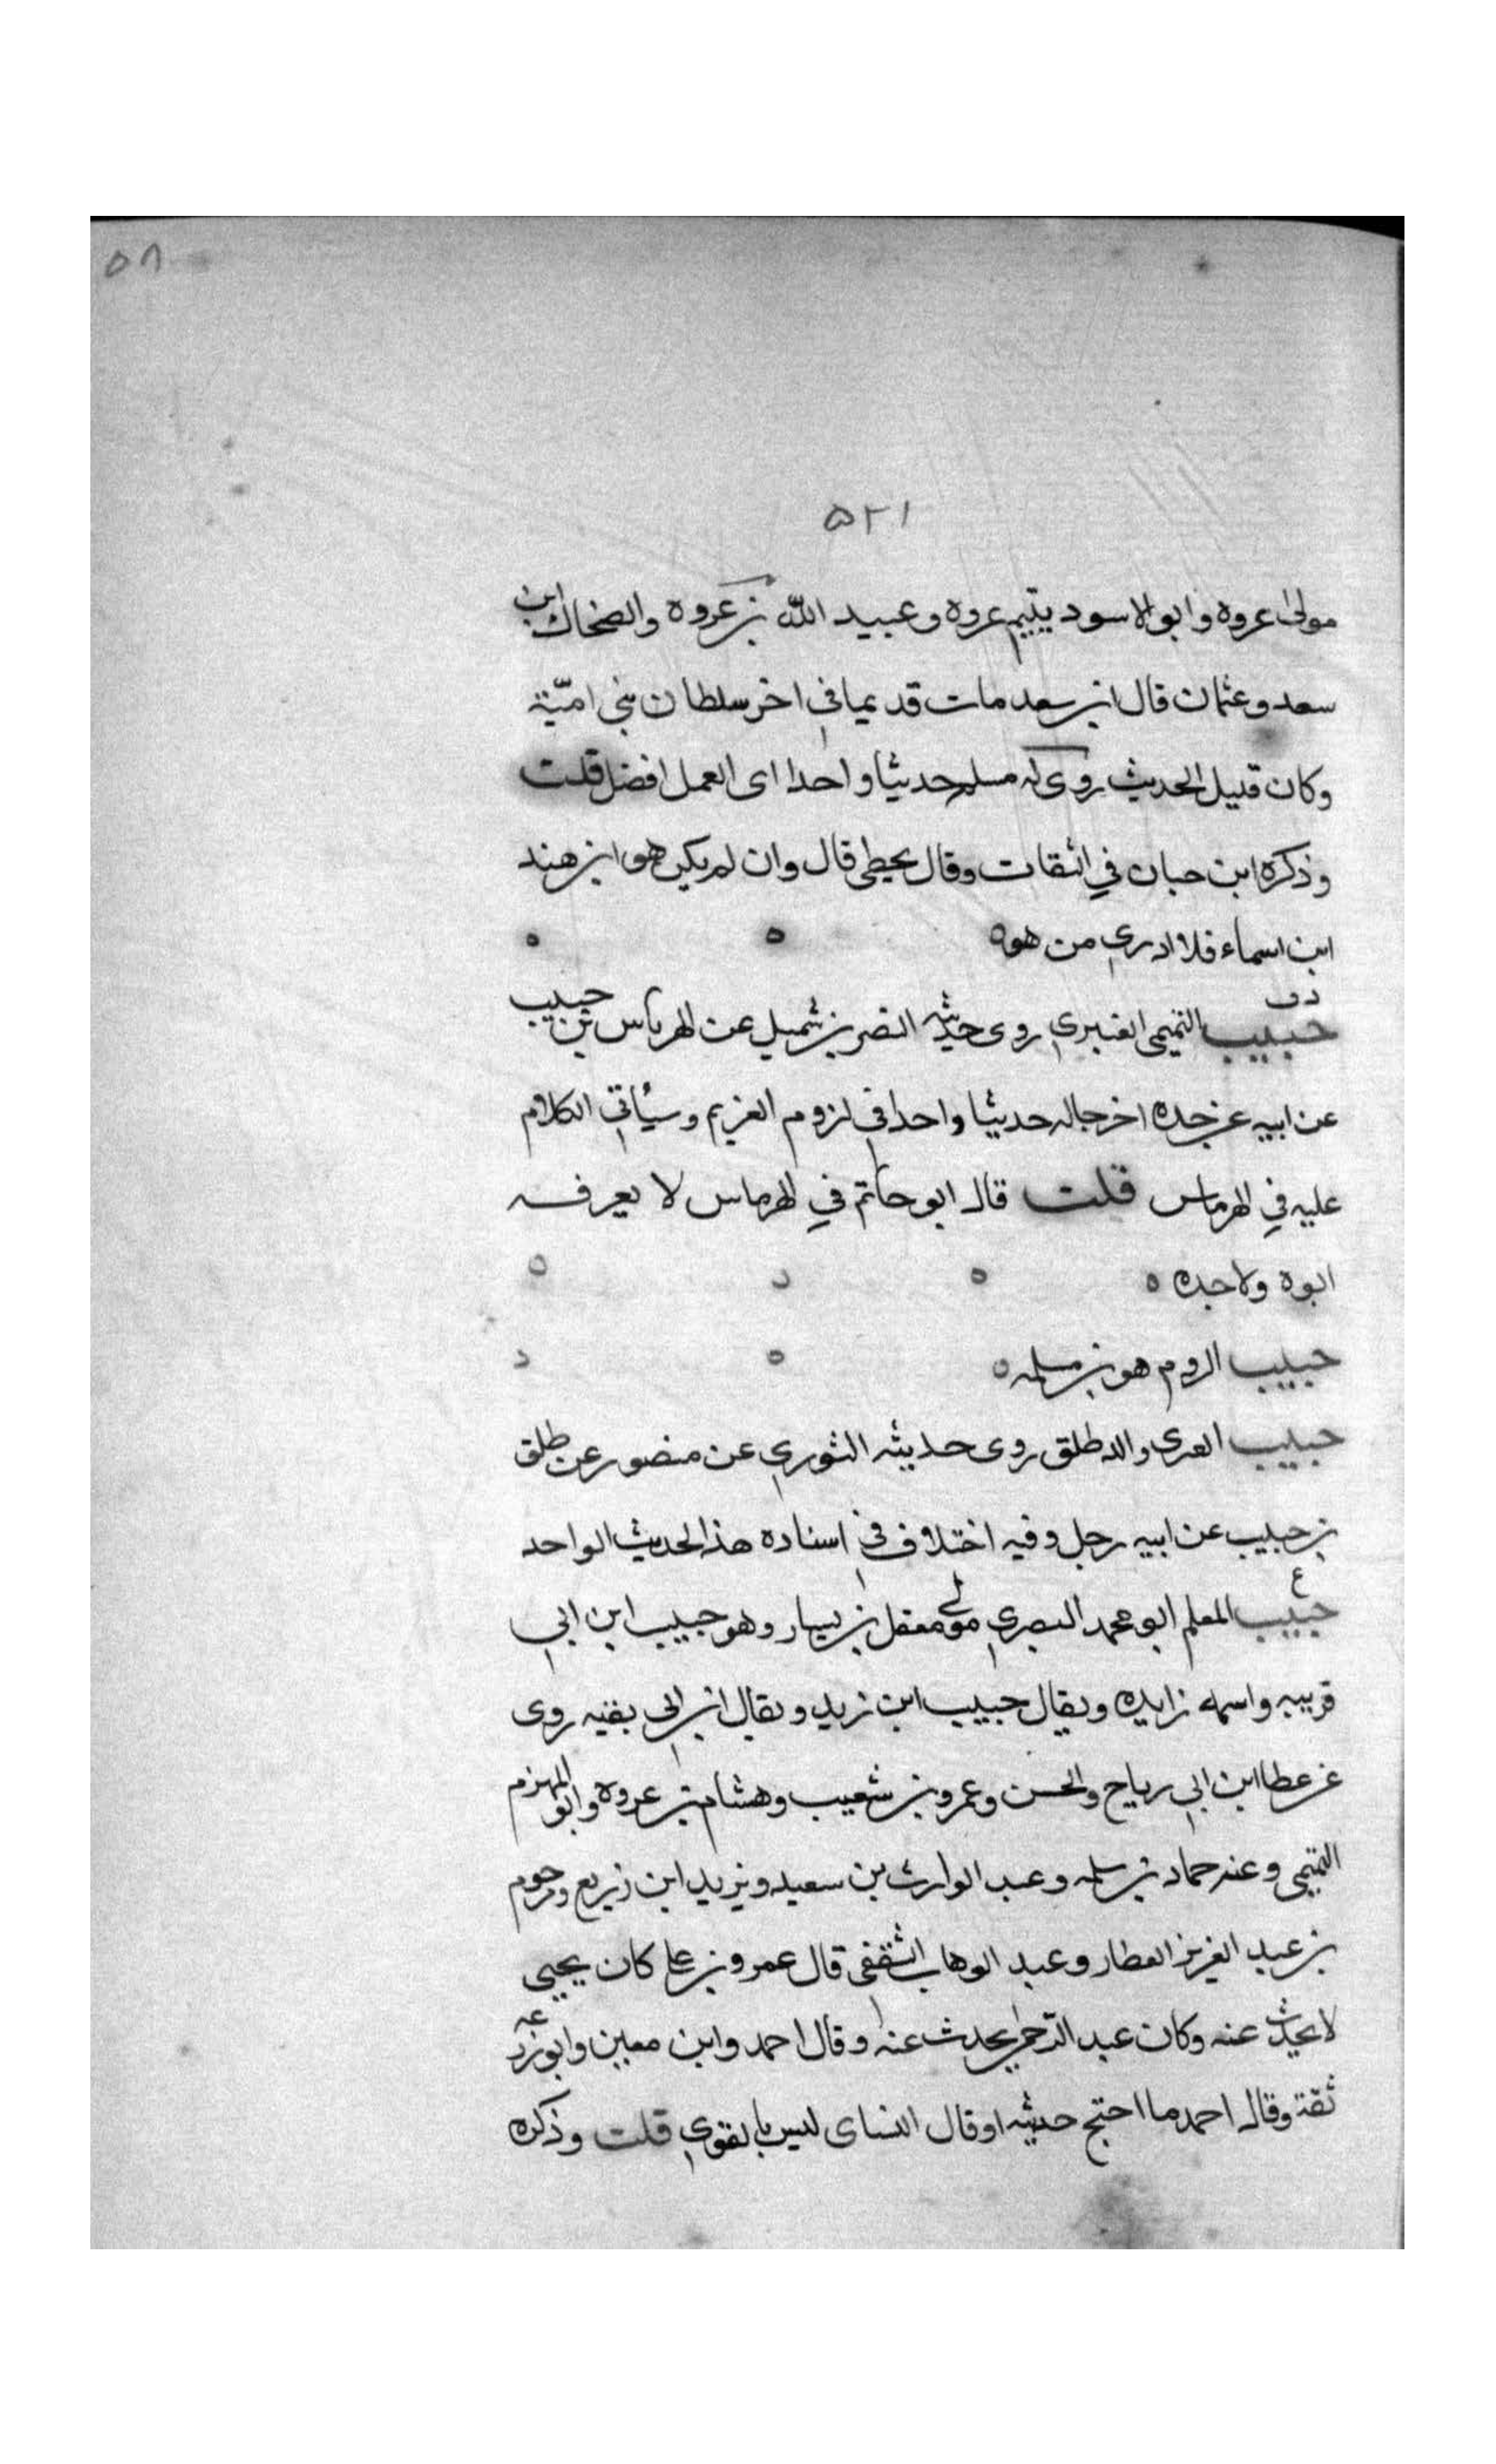 ٥٨
٥٢١
مولى عروه وابو الاسود يتيم عروه وعبيد الله بن عروه والضحاك ابن
سعد وعثمان قال ابن سعد مات قديما في اخر سلطان بني اميّة
وكان قليل الحديث روى له مسلم حديثا واحدا اى العمل افضل قلت
وذكره ابن حبان في الثقات وقال يخطى قال وان لم يكن هو ابن هند
ابن اسماء فلا ادري من هو ه
دق
حبيب التميمي العنبري روى حديثه النضر بن شميل عن الهرماس بن حبيب
عن ابيه عن جده اخرجا له حديثا واحدا في لزوم الغريم وسيأتي الكلام
عليه في الهرماس قلت قال ابو حاتم في الهرماس لا يعرف
ابوه ولا جده ه
حبيب الروم هو بن مسلمه ه
حبيب العرى والد طلق روى حديثه الثوري عن منصور عن طلق
بن حبيب عن ابيه رجل وفيه اختلاف في اسناده هذا الحديث الواحد
ع
حبيب المعلم ابو محمد البصري مولى معقل بن يسار وهو حبيب ابن ابي
قريبه واسمه زايده ويقال حبيب ابن زيد ويقال ابن ابي بقيه روى
عن عطا ابن ابي رباح والحسن وعمرو بن شعيب وهشام بن عروه وابو المهزم
التميمي وعنه حماد بن سلمه وعبد الوارث بن سعيد ويزيد ابن زريع ومرحوم
بن عبد العزيز العطار وعبد الوهاب الثقفي قال عمرو بن علي كان يحيى
لا يحدث عنه وكان عبد الرحمن يحدث عنه وقال احمد وابن معين وابو زرعه
ثقة وقال احمد ما احتج حديثه اوقال النساى ليس بالقوي قلت وذكره